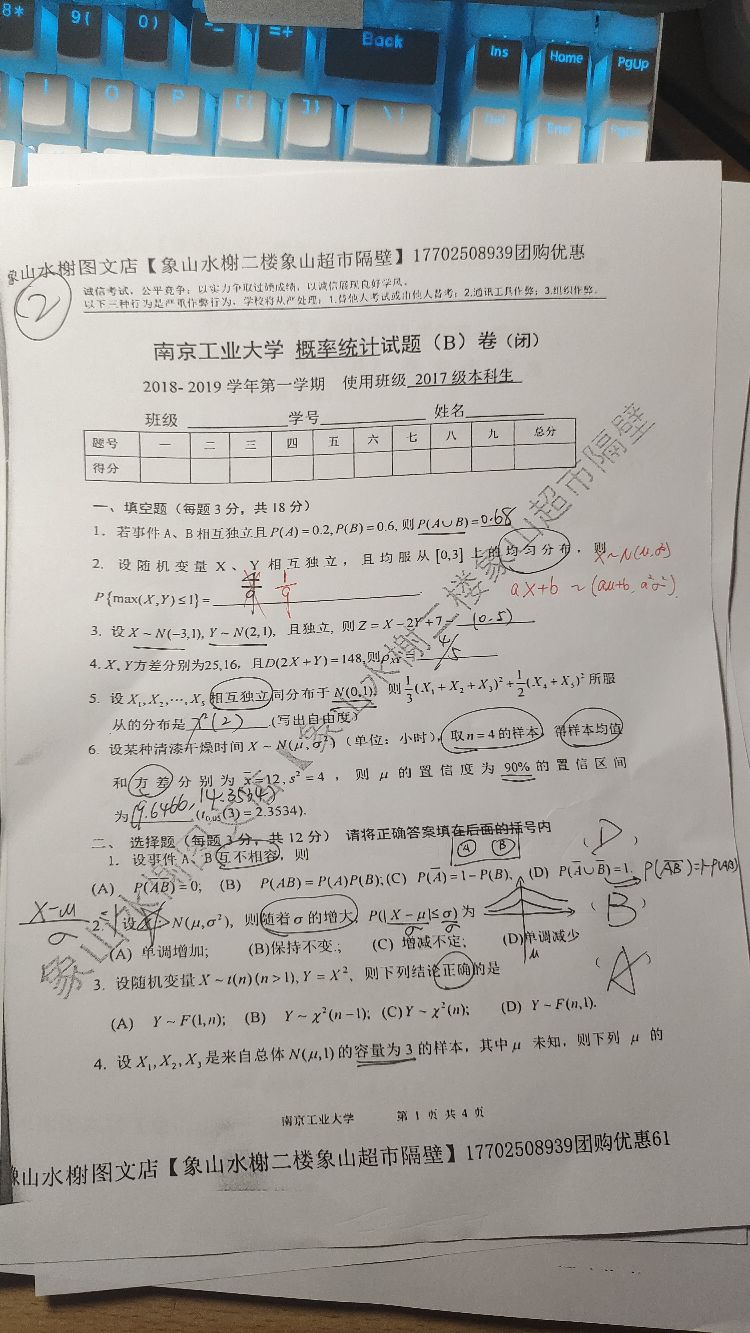 8* 9( 0) -_ =+ Back Ins Home PgUp
I O P [{ ]} \| Del End PgDn
象山水榭图文店【象山水榭二楼象山超市隔壁】17702508939团购优惠
②
诚信考试，公平竞争；以实力争取过硬成绩，以诚信展现良好学风。
以下三种行为是严重作弊行为，学校将从严处理：1.替他人考试或由他人替考；2.通讯工具作弊；3.组织作弊。
南京工业大学 概率统计试题（B）卷（闭）
2018-2019学年第一学期 使用班级 2017级本科生
班级 学号 姓名
题号 一 二 三 四 五 六 七 八 九 总分
得分
一、填空题（每题3分，共18分）
1．若事件A、B相互独立且P(A)=0.2,P(B)=0.6,则P(A∪B)=0.68
2. 设随机变量X、Y相互独立，且均服从[0,3]上的均匀分布，则 X~N(μ,σ²)
P{max(X,Y)≤1}= 1/9 aX+b ~(aμ+b, a²σ²)
3. 设X~N(−3,1),Y~N(2,1)，且独立, 则Z=X−2Y+7~ (0.5)
4. X,Y方差分别为25,16，且D(2X+Y)=148,则ρXY= 4/5
5. 设X₁,X₂,⋯,X₅相互独立同分布于N(0,1)，则1/3(X₁+X₂+X₃)²+1/2(X₄+X₅)²所服
从的分布是 χ²(2) .(写出自由度)
6. 设某种清漆干燥时间X~N(μ,σ²)（单位：小时），取n=4的样本，得样本均值
和方差分别为x̄=12,s²=4，则μ的置信度为90%的置信区间
为(9.6466, 14.3534).(t₀.₀₅(3)=2.3534).
二、选择题（每题3分，共12分） 请将正确答案填在后面的括号内
1. 设事件A、B互不相容，则 A B (D)
(A) P(A̅B̅)=0; (B) P(AB)=P(A)P(B); (C) P(A̅)=1−P(B); (D) P(A̅∪B̅)=1. P(A̅B̅)=1-P(AB)
X-μ/σ 2. 设X~N(μ,σ²)，则随着σ的增大，P(|X−μ|≤σ)为 (B)
σ σ
(A) 单调增加; (B)保持不变.; (C) 增减不定; (D)单调减少
μ
3. 设随机变量X~t(n)(n>1),Y=X²，则下列结论正确的是 (A)
(A) Y~F(1,n); (B) Y~χ²(n−1); (C)Y~χ²(n); (D) Y~F(n,1).
4. 设X₁,X₂,X₃是来自总体N(μ,1)的容量为3的样本，其中μ未知，则下列μ的
南京工业大学 第 1 页 共 4 页
象山水榭图文店【象山水榭二楼象山超市隔壁】17702508939团购优惠61
象山水榭图文店【象山水榭二楼象山超市隔壁